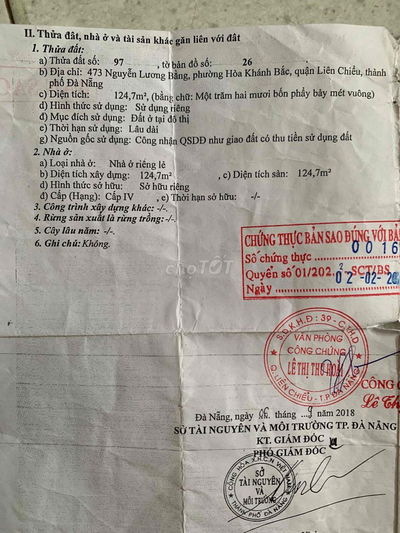 II. Thửa đất, nhà ở và tài sản khác gắn liền với đất
1. Thửa đất:
a) Thửa đất số: 97 , tờ bản đồ số: 26
b) Địa chỉ: 473 Nguyễn Lương Bằng, phường Hòa Khánh Bắc, quận Liên Chiểu, thành
phố Đà Nẵng
c) Diện tích: 124,7m², (bằng chữ: Một trăm hai mươi bốn phẩy bảy mét vuông)
d) Hình thức sử dụng: Sử dụng riêng
đ) Mục đích sử dụng: Đất ở tại đô thị
e) Thời hạn sử dụng: Lâu dài
g) Nguồn gốc sử dụng: Công nhận QSDĐ như giao đất có thu tiền sử dụng đất
2. Nhà ở:
a) Loại nhà ở: Nhà ở riêng lẻ
b) Diện tích xây dựng: 124,7m² , c) Diện tích sàn: 124,7m²
d) Hình thức sở hữu: Sở hữu riêng
đ) Cấp (Hạng): Cấp IV , e) Thời hạn sở hữu: -/-
3. Công trình xây dựng khác: -/-
4. Rừng sản xuất là rừng trồng: -/-
5. Cây lâu năm: -/-
6. Ghi chú: Không.
CHỨNG THỰC BẢN SAO ĐÚNG VỚI BẢ
Số chứng thực 0016
Quyển số 01/2022 SCT/BS
Ngày 02-02-20
choTỐT
S.Đ.K.H.Đ: 39 - C.T.H.D
VĂN PHÒNG
CÔNG CHỨNG
LÊ THỊ THU
Q. LIÊN CHIỂU - T.P ĐÀ NẴNG
CÔNG
Lê Th
Đà Nẵng, ngày 06 tháng 9 năm 2018
SỞ TÀI NGUYÊN VÀ MÔI TRƯỜNG TP. ĐÀ NẴNG
KT. GIÁM ĐỐC
PHÓ GIÁM ĐỐC
CỘNG HÒA X.H.C.N VIỆT NAM
SỞ
TÀI NGUYÊN
VÀ
MÔI TRƯỜNG
THÀNH PHỐ ĐÀ NẴNG